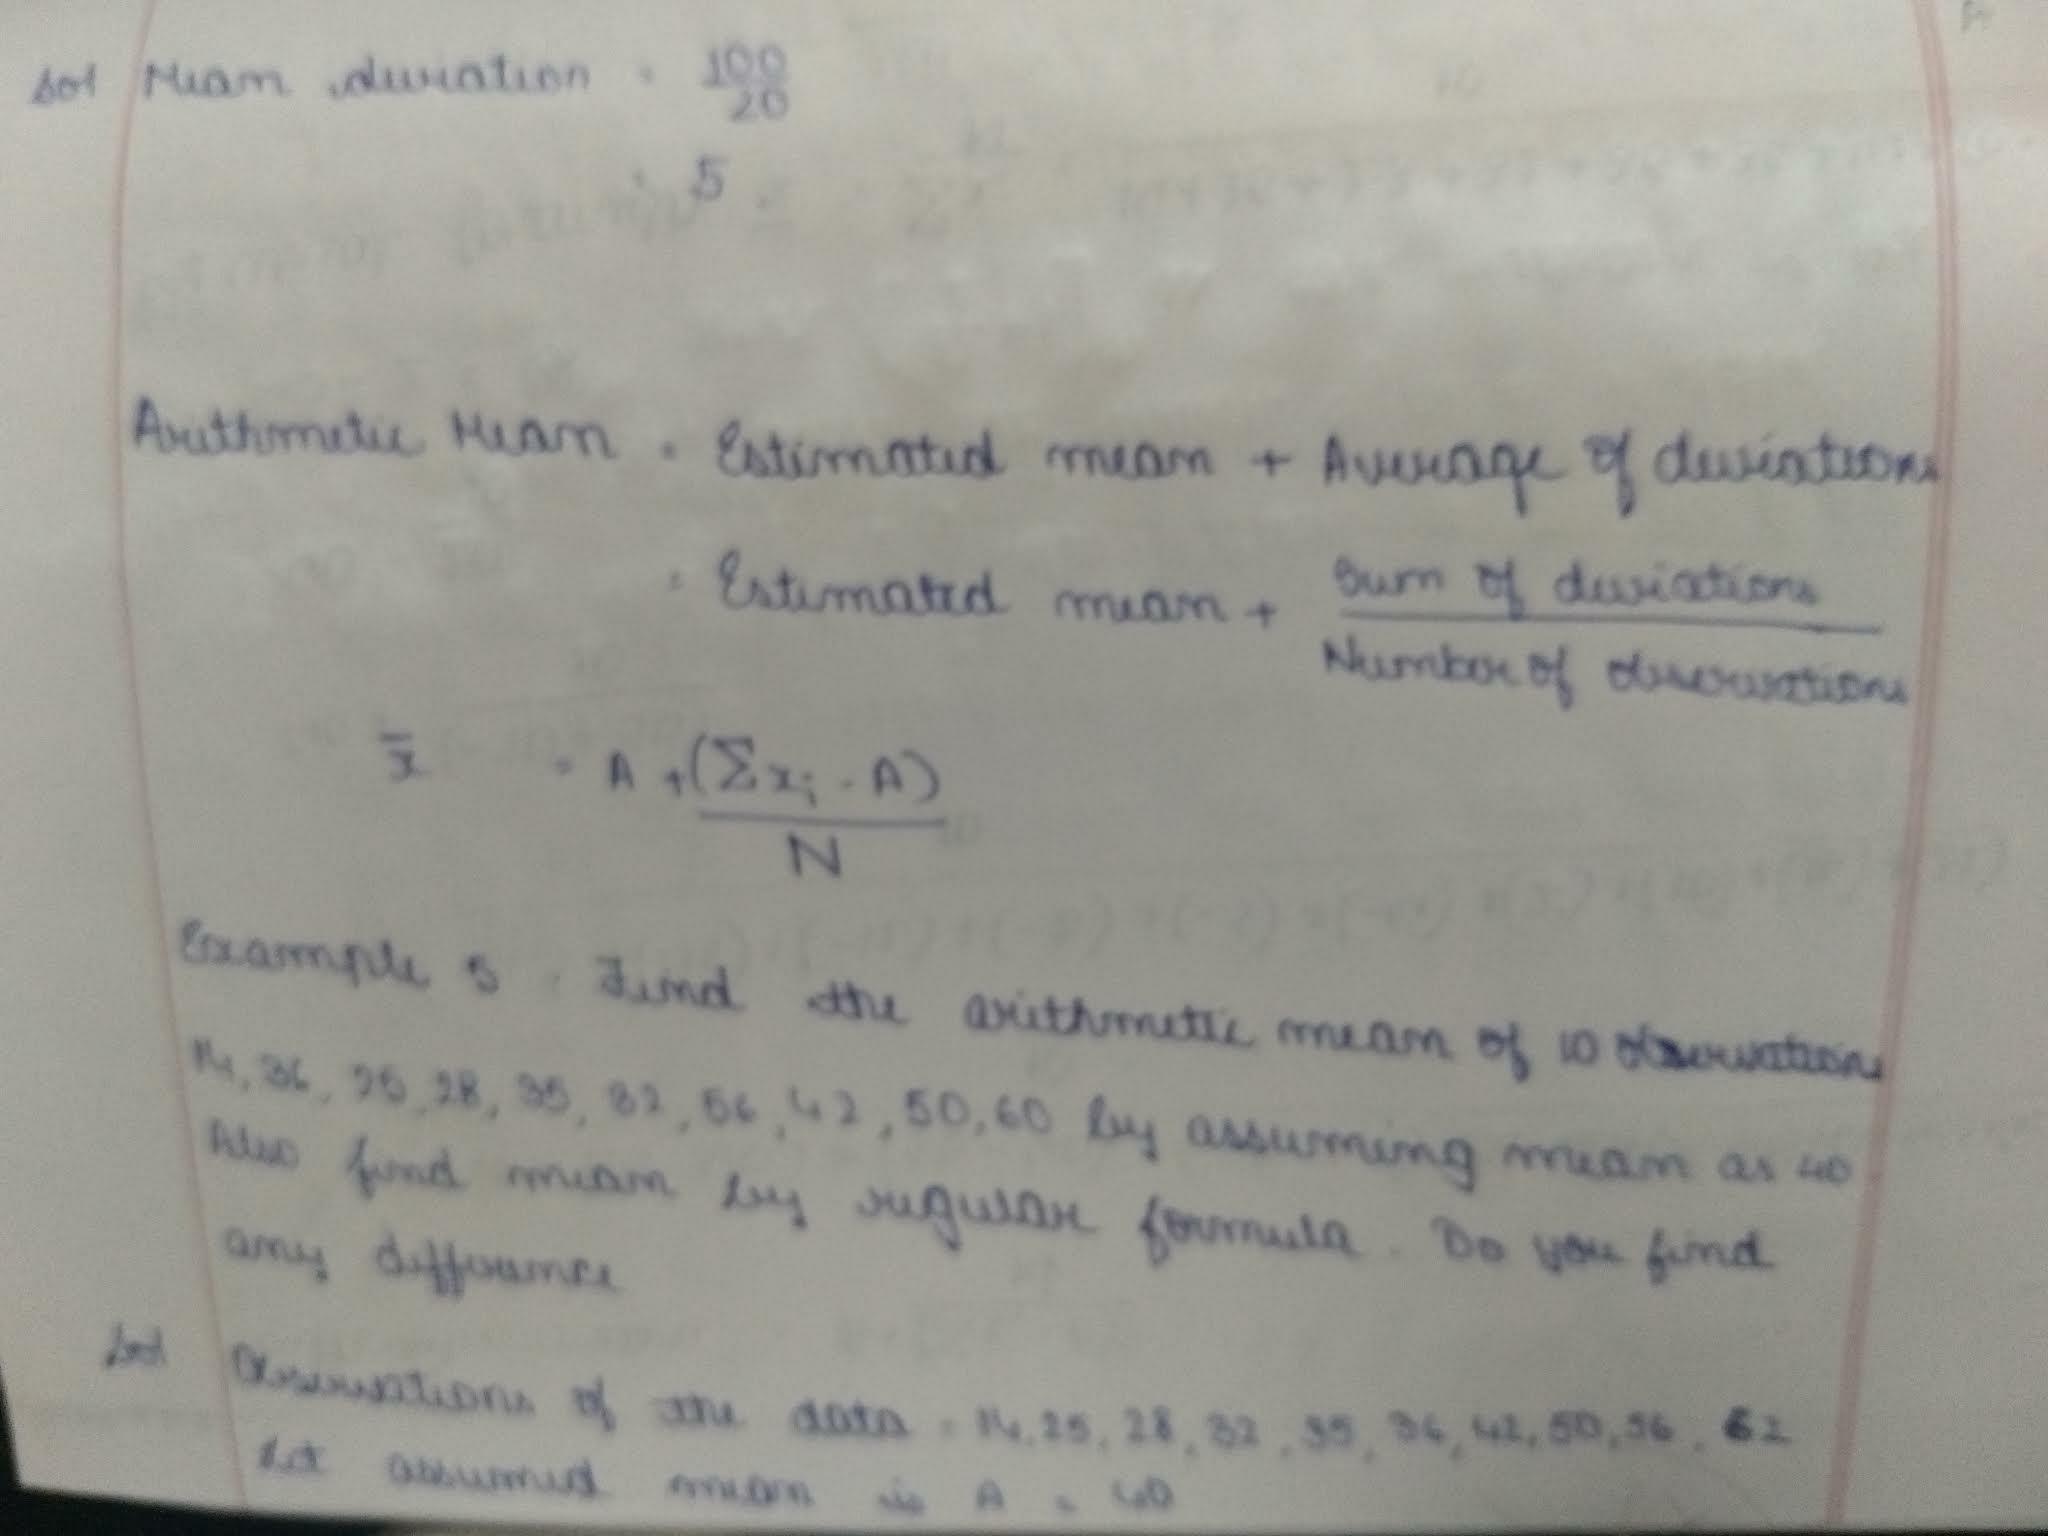 Sol Mean deviation = 100/20
= 5
Arithmetic Mean = Estimated mean + Average of deviations
= Estimated mean + Sum of deviations / Number of observations
x̄ = A + (Σxi - A) / N
Example 5. Find the arithmetic mean of 10 observations
14, 36, 25, 28, 35, 32, 56, 42, 50, 60 by assuming mean as 40
Also find mean by regular formula. Do you find
any difference
Sol Observations of the data = 14, 25, 28, 32, 35, 36, 42, 50, 56, 62
Let assumed mean is A = 40